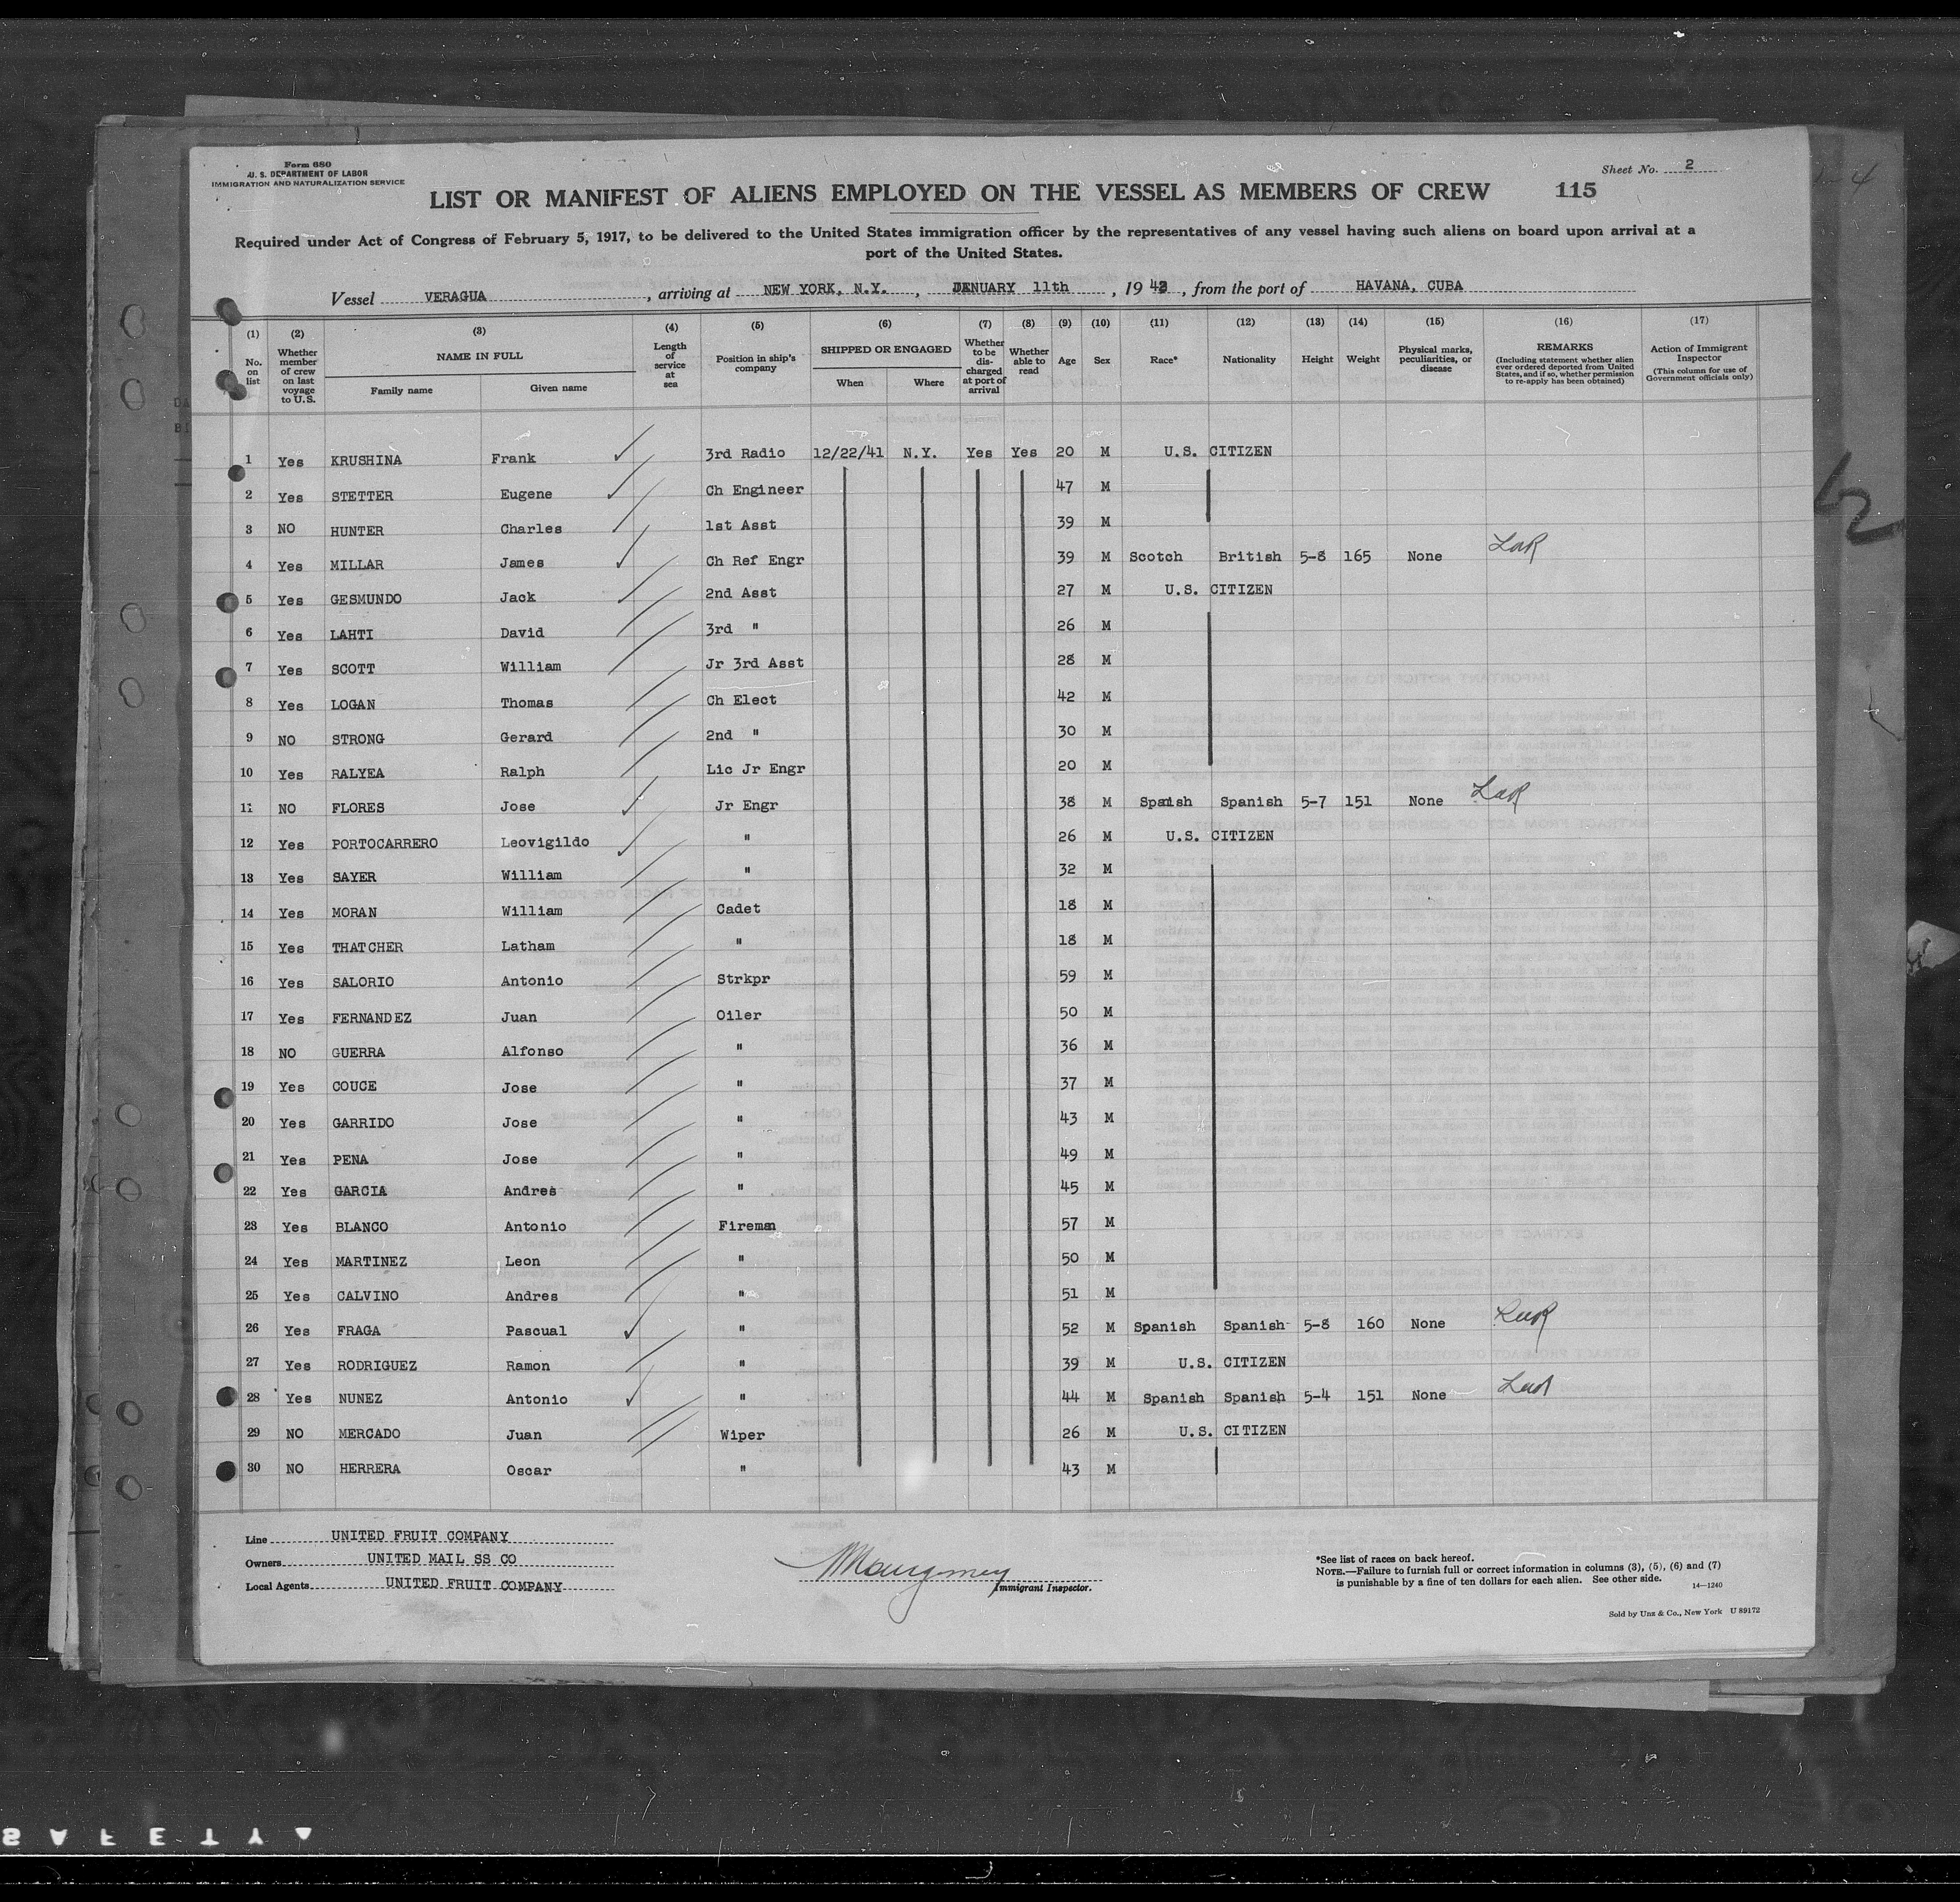 Form 680
U. S. DEPARTMENT OF LABOR
IMMIGRATION AND NATURALIZATION SERVICE
Sheet No. 2
LIST OR MANIFEST OF ALIENS EMPLOYED ON THE VESSEL AS MEMBERS OF CREW 115
Required under Act of Congress of February 5, 1917, to be delivered to the United States immigration officer by the representatives of any vessel having such aliens on board upon arrival at a
port of the United States.
Vessel VERAGUA, arriving at NEW YORK, N.Y., JANUARY 11th, 1942, from the port of HAVANA, CUBA
(1) (2) (3) (4) (5) (6) (7) (8) (9) (10) (11) (12) (13) (14) (15) (16) (17)
No. on list
Whether member of crew on last voyage to U.S.
NAME IN FULL
Family name
Given name
Length of service at sea
Position in ship's company
SHIPPED OR ENGAGED
When
Where
Whether to be discharged at port of arrival
Whether able to read
Age
Sex
Race*
Nationality
Height
Weight
Physical marks, peculiarities, or disease
REMARKS
(Including statement whether alien ever ordered deported from United States, and if so, whether permission to re-apply has been obtained)
Action of Immigrant Inspector
(This column for use of Government officials only)
1 Yes KRUSHINA Frank 3rd Radio 12/22/41 N.Y. Yes Yes 20 M U.S. CITIZEN
2 Yes STETTER Eugene Ch Engineer 47 M
3 NO HUNTER Charles 1st Asst 39 M
4 Yes MILLAR James Ch Ref Engr 39 M Scotch British 5-8 165 None
5 Yes GESMUNDO Jack 2nd Asst 27 M U.S. CITIZEN
6 Yes LAHTI David 3rd " 26 M
7 Yes SCOTT William Jr 3rd Asst 28 M
8 Yes LOGAN Thomas Ch Elect 42 M
9 NO STRONG Gerard 2nd " 30 M
10 Yes RALYEA Ralph Lic Jr Engr 20 M
11 NO FLORES Jose Jr Engr 38 M Spanish Spanish 5-7 151 None
12 Yes PORTOCARRERO Leovigildo " 26 M U.S. CITIZEN
13 Yes SAYER William " 32 M
14 Yes MORAN William Cadet 18 M
15 Yes THATCHER Latham " 18 M
16 Yes SALORIO Antonio Strkpr 59 M
17 Yes FERNANDEZ Juan Oiler 50 M
18 NO GUERRA Alfonso " 36 M
19 Yes COUCE Jose " 37 M
20 Yes GARRIDO Jose " 43 M
21 Yes PENA Jose " 49 M
22 Yes GARCIA Andres " 45 M
23 Yes BLANCO Antonio Fireman 57 M
24 Yes MARTINEZ Leon " 50 M
25 Yes CALVINO Andres " 51 M
26 Yes FRAGA Pascual " 52 M Spanish Spanish 5-8 160 None
27 Yes RODRIGUEZ Ramon " 39 M U.S. CITIZEN
28 Yes NUNEZ Antonio " 44 M Spanish Spanish 5-4 151 None
29 NO MERCADO Juan Wiper 26 M U.S. CITIZEN
30 NO HERRERA Oscar " 43 M
Line UNITED FRUIT COMPANY
Owners UNITED MAIL SS CO
Local Agents UNITED FRUIT COMPANY
Immigrant Inspector.
*See list of races on back hereof.
NOTE.—Failure to furnish full or correct information in columns (3), (5), (6) and (7)
is punishable by a fine of ten dollars for each alien. See other side.
14—1240
Sold by Unz & Co., New York U 89172
SAFETY